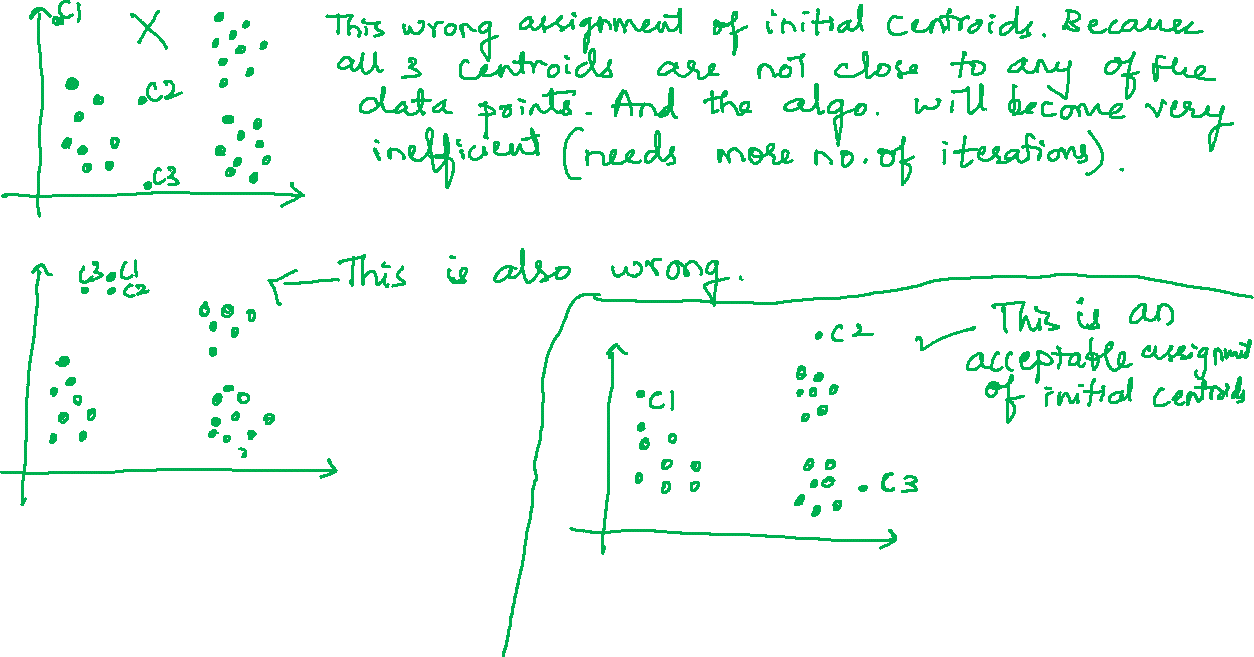 C1
This wrong assignment of initial centroids. Because
all 3 centroids are not close to any of the
C2
data points. And the algo. will become very
inefficient (needs more no. of iterations).
C3
C3 C1
C2
This is also wrong.
This is an
C2
acceptable assignmnt
of initial centroids
C1
C3